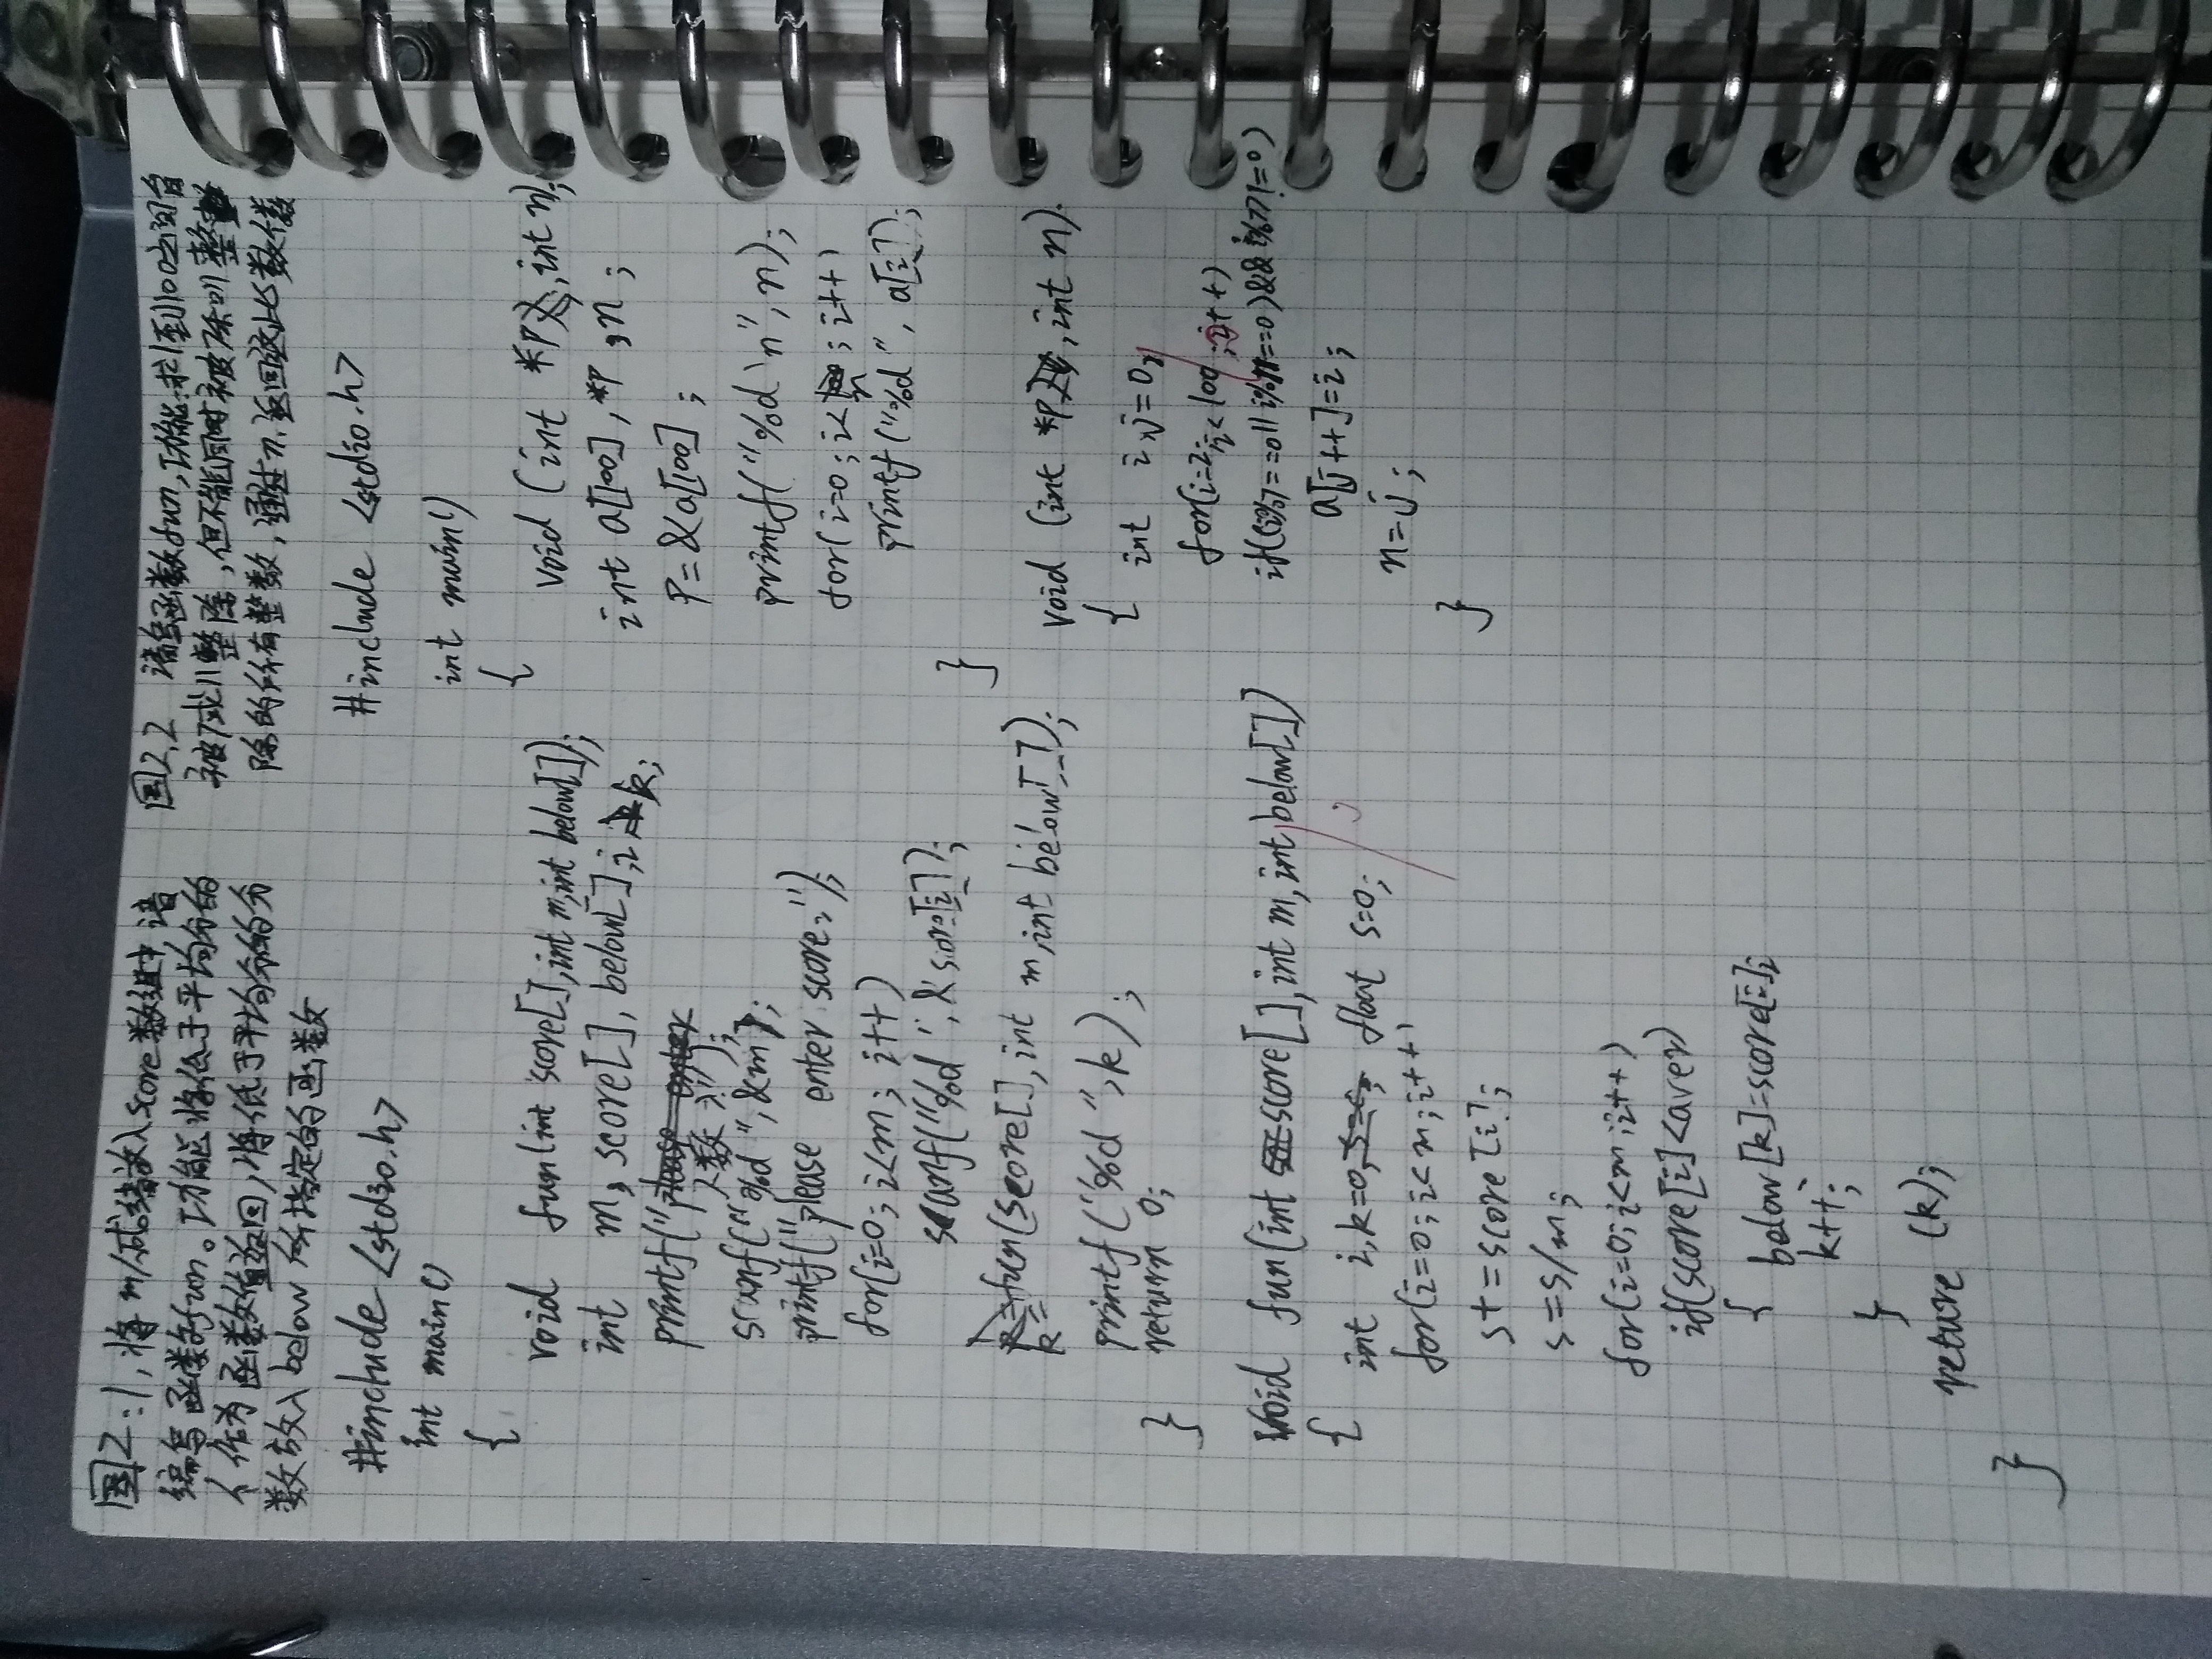 国2:1,将m个成绩放入score数组中请
编写函数fun。功能将低于平均分的
个作为函数值返回,将低于平均分的分
数放入below所指定的函数
#include <stdio.h>
int main()
{
void fun(int score[],int m,int below[]);
int m, score[], below[],i k;
printf("人数:");
scanf("%d",&m);
printf("please enter score:");
for(i=0;i<m;i++)
scanf("%d",&score[i]);
k=fun(score[],int m,int below[]);
printf("%d",k);
return 0;
}
void fun(int score[],int m,int below[])
{
int i,k=0, float s=0;
for(i=0;i<m;i++)
s+=score[i];
s=s/m;
for(i=0;i<m;i++)
if(score[i]<aver)
{
below[k]=score[i];
k++;
}
return (k);
}
国2,2 请写函数fun,功能:求1到100之间台
被7或11整除,但不能同时被7和11整
除的所有整数,通过n返回这些数值
#include <stdio.h>
int main()
{
void (int *p,int n);
int a[100],*p,n;
p=&a[100];
printf("%d\n",n);
for(i=0;i<n;i++)
printf("%d",a[i]);
}
void (int *p,int n)
{
int i,j=0;
for(i=2;i<100;i++)
if((i%7==0||i%11==0)&&i%77!=0)
a[j++]=i;
n=j;
}